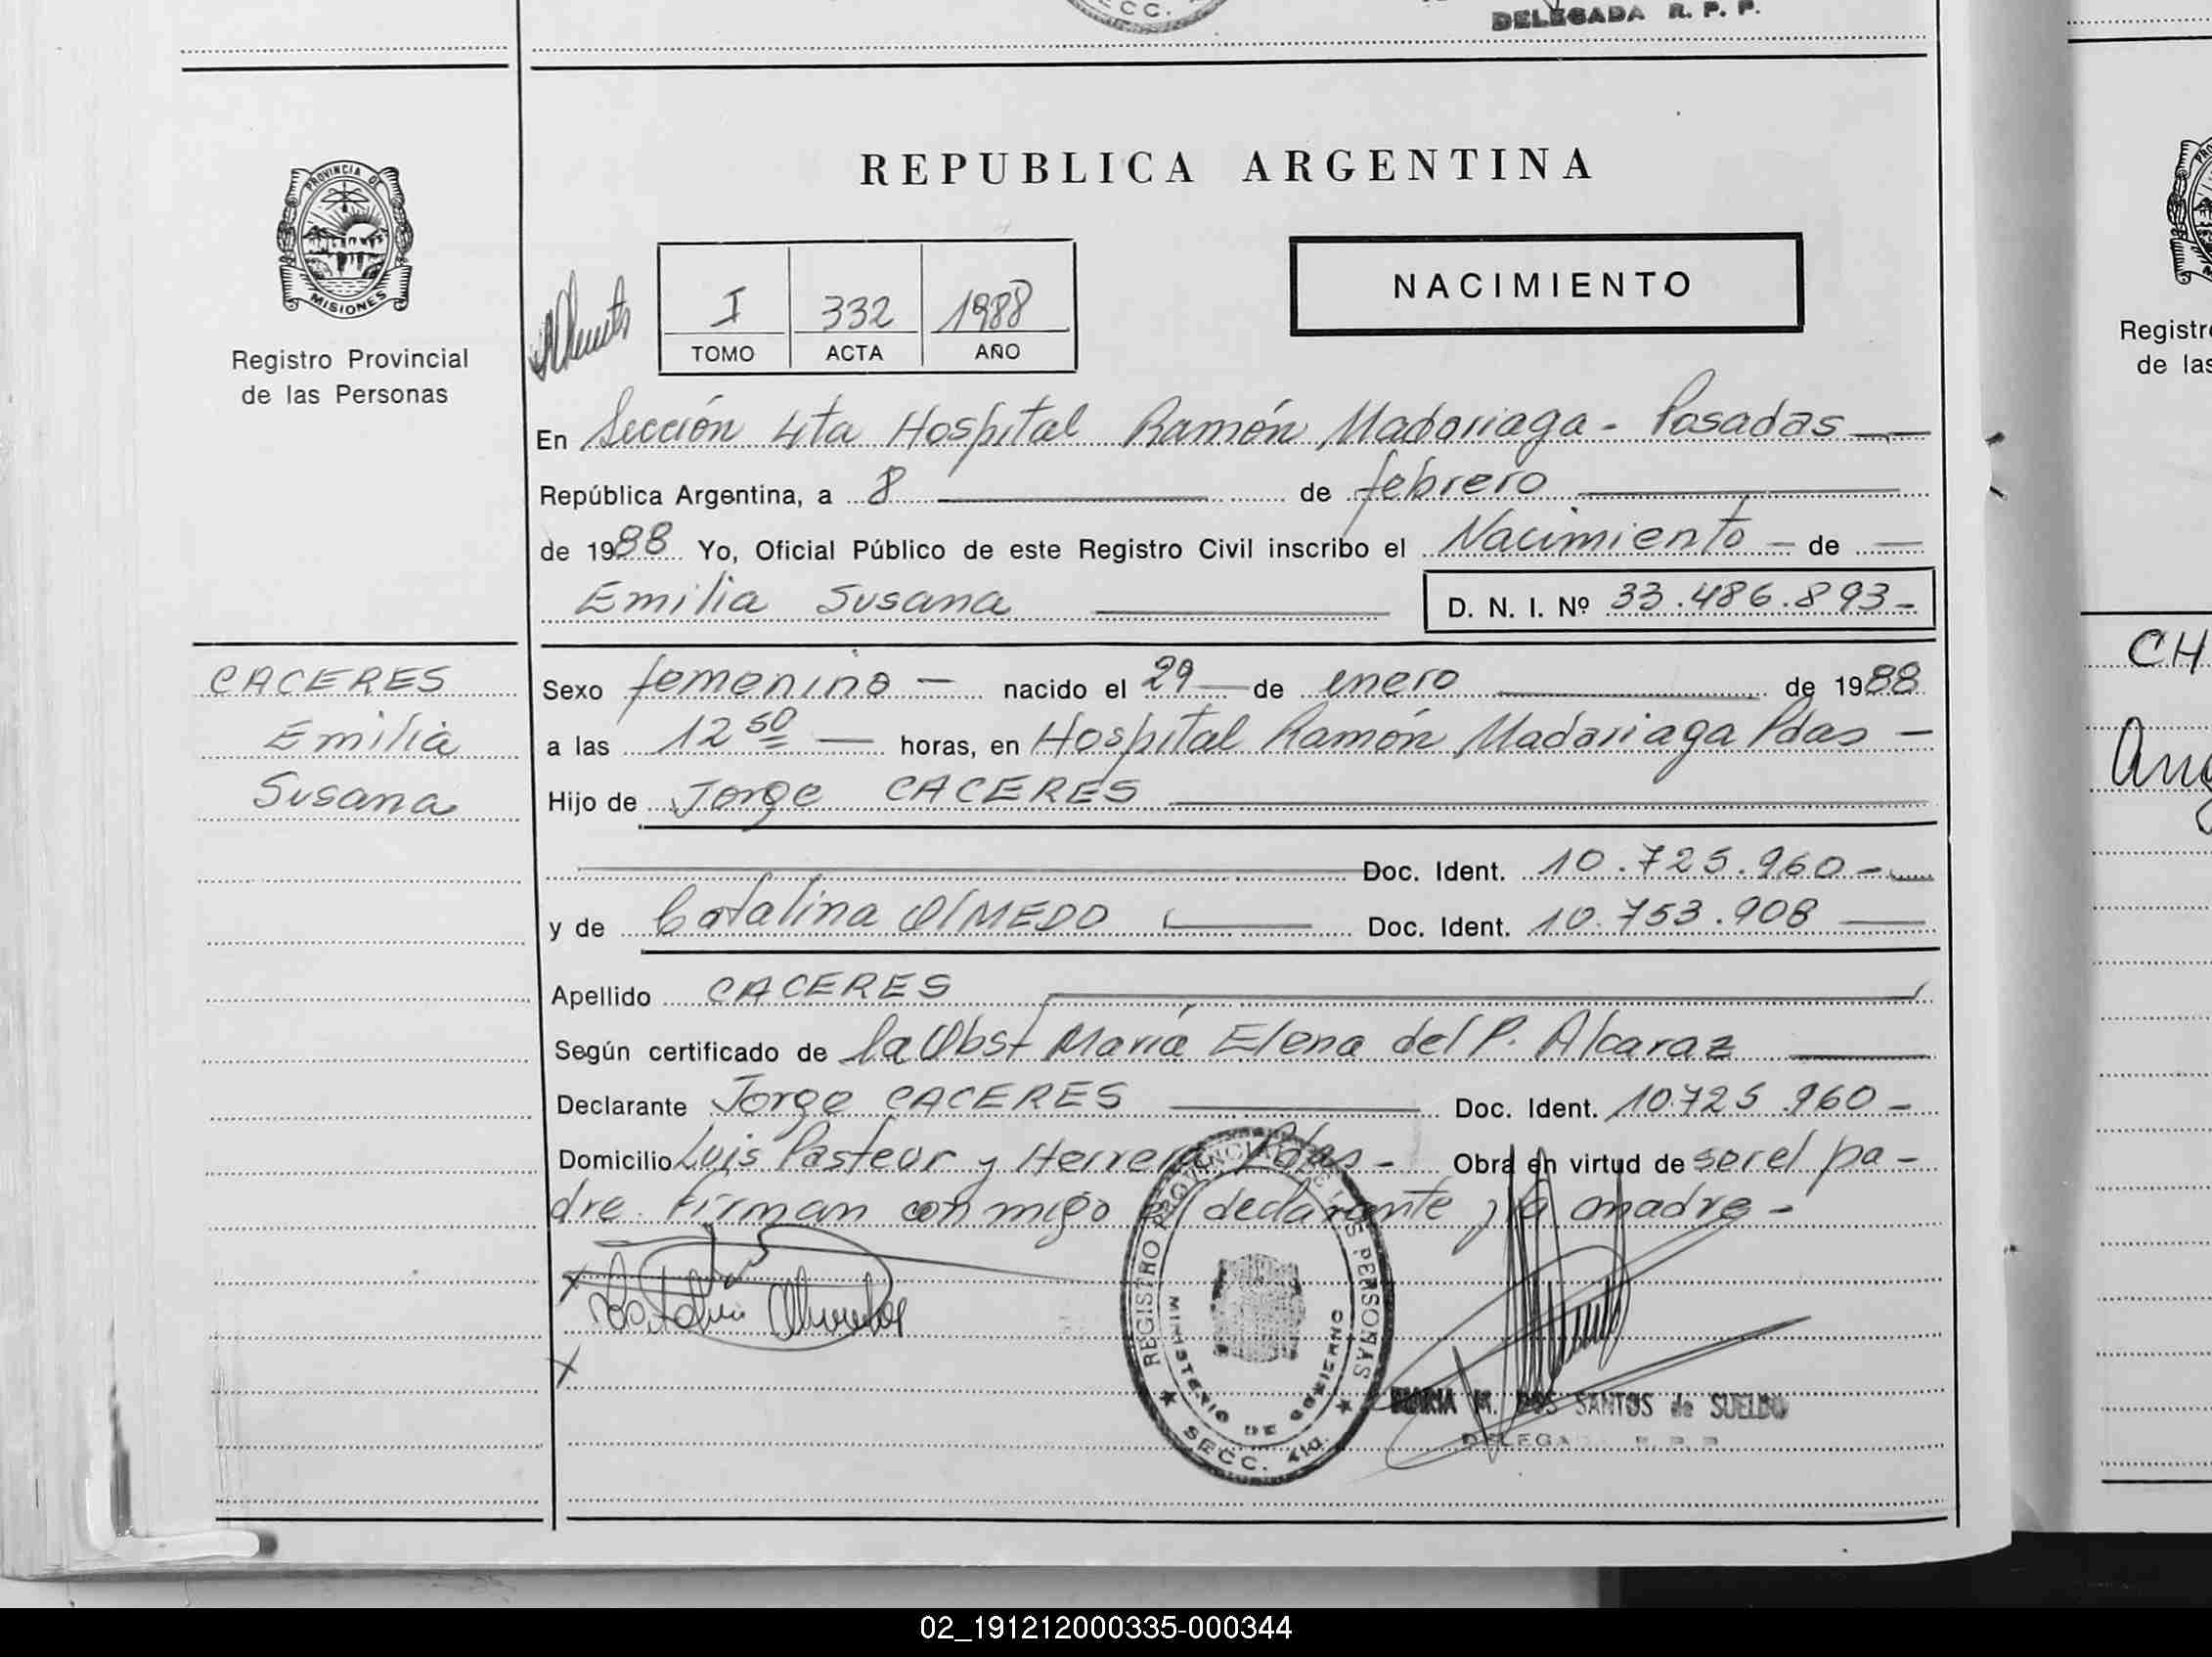 SECC.
DELEGADA R. P. P.
PROVINCIA DE
MISIONES
Registro Provincial
de las Personas
REPUBLICA ARGENTINA
I 332 1988
TOMO ACTA AÑO
NACIMIENTO
En Sección 4ta Hospital Ramón Madariaga - Posadas
República Argentina, a 8 de febrero
de 1988 Yo, Oficial Público de este Registro Civil inscribo el Nacimiento - de
Emilia Susana D. N. I. Nº 33.486.893-
CACERES
Emilia
Susana
Sexo femenino - nacido el 29 de enero de 1988
a las 12 50 horas, en Hospital Ramón Madariaga Pdas -
Hijo de Jorge CACERES
Doc. Ident. 10.725.960-
y de Catalina OlMEDO Doc. Ident. 10.753.908
Apellido CACERES
Según certificado de la Obst María Elena del P. Alcaraz
Declarante Jorge CACERES Doc. Ident. 10.725.960-
Domicilio Luis Pasteur y Herrera Pdas- Obra en virtud de ser el pa-
dre. Firman con migo el declarante y la madre-
REGISTRO PROVINCIAL DE LAS PERSONAS
MINISTERIO DE GOBIERNO
SECC. 4ta.
MARIA M. DOS SANTOS de SUELDO
DELEGADA R. P. P.
Registr
de las
CH
Ang
02_191212000335-000344